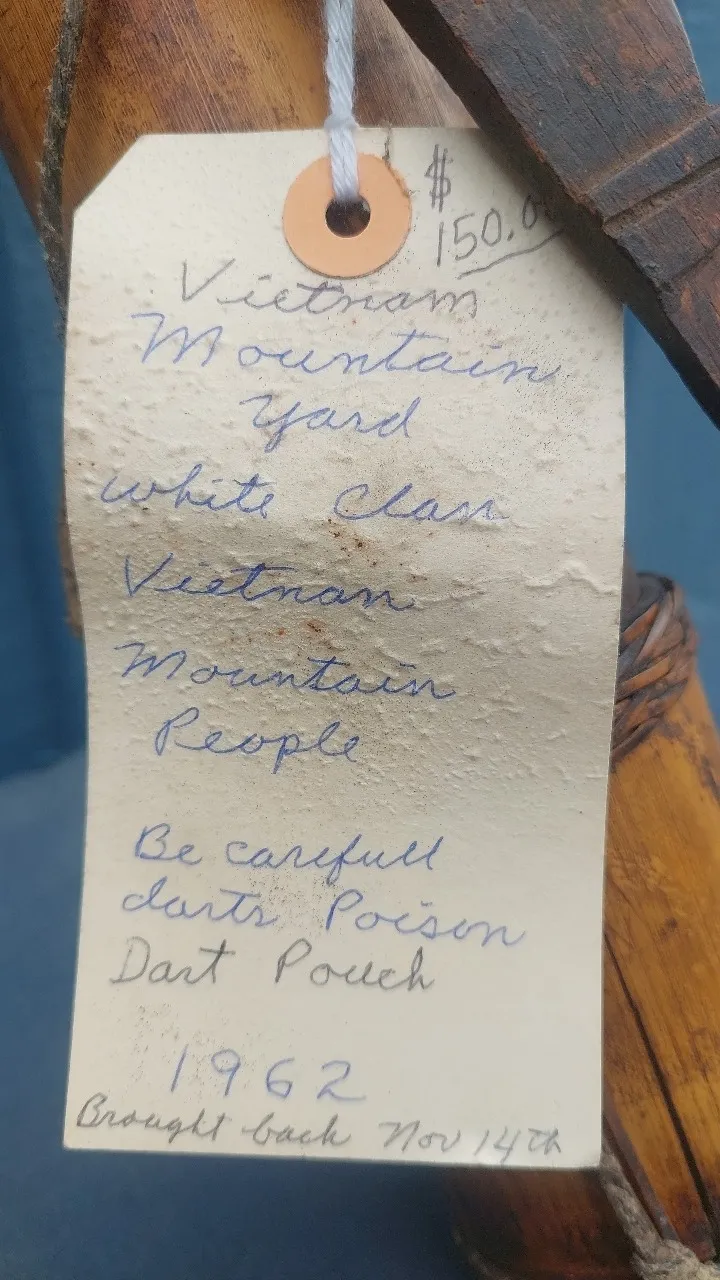 $
150.0
Vietnam
Mountain
yard
white clan
Vietnan
Mountain
People
Be carefull
darts Poison
Dart Pouch
1962
Brought back Nov 14th